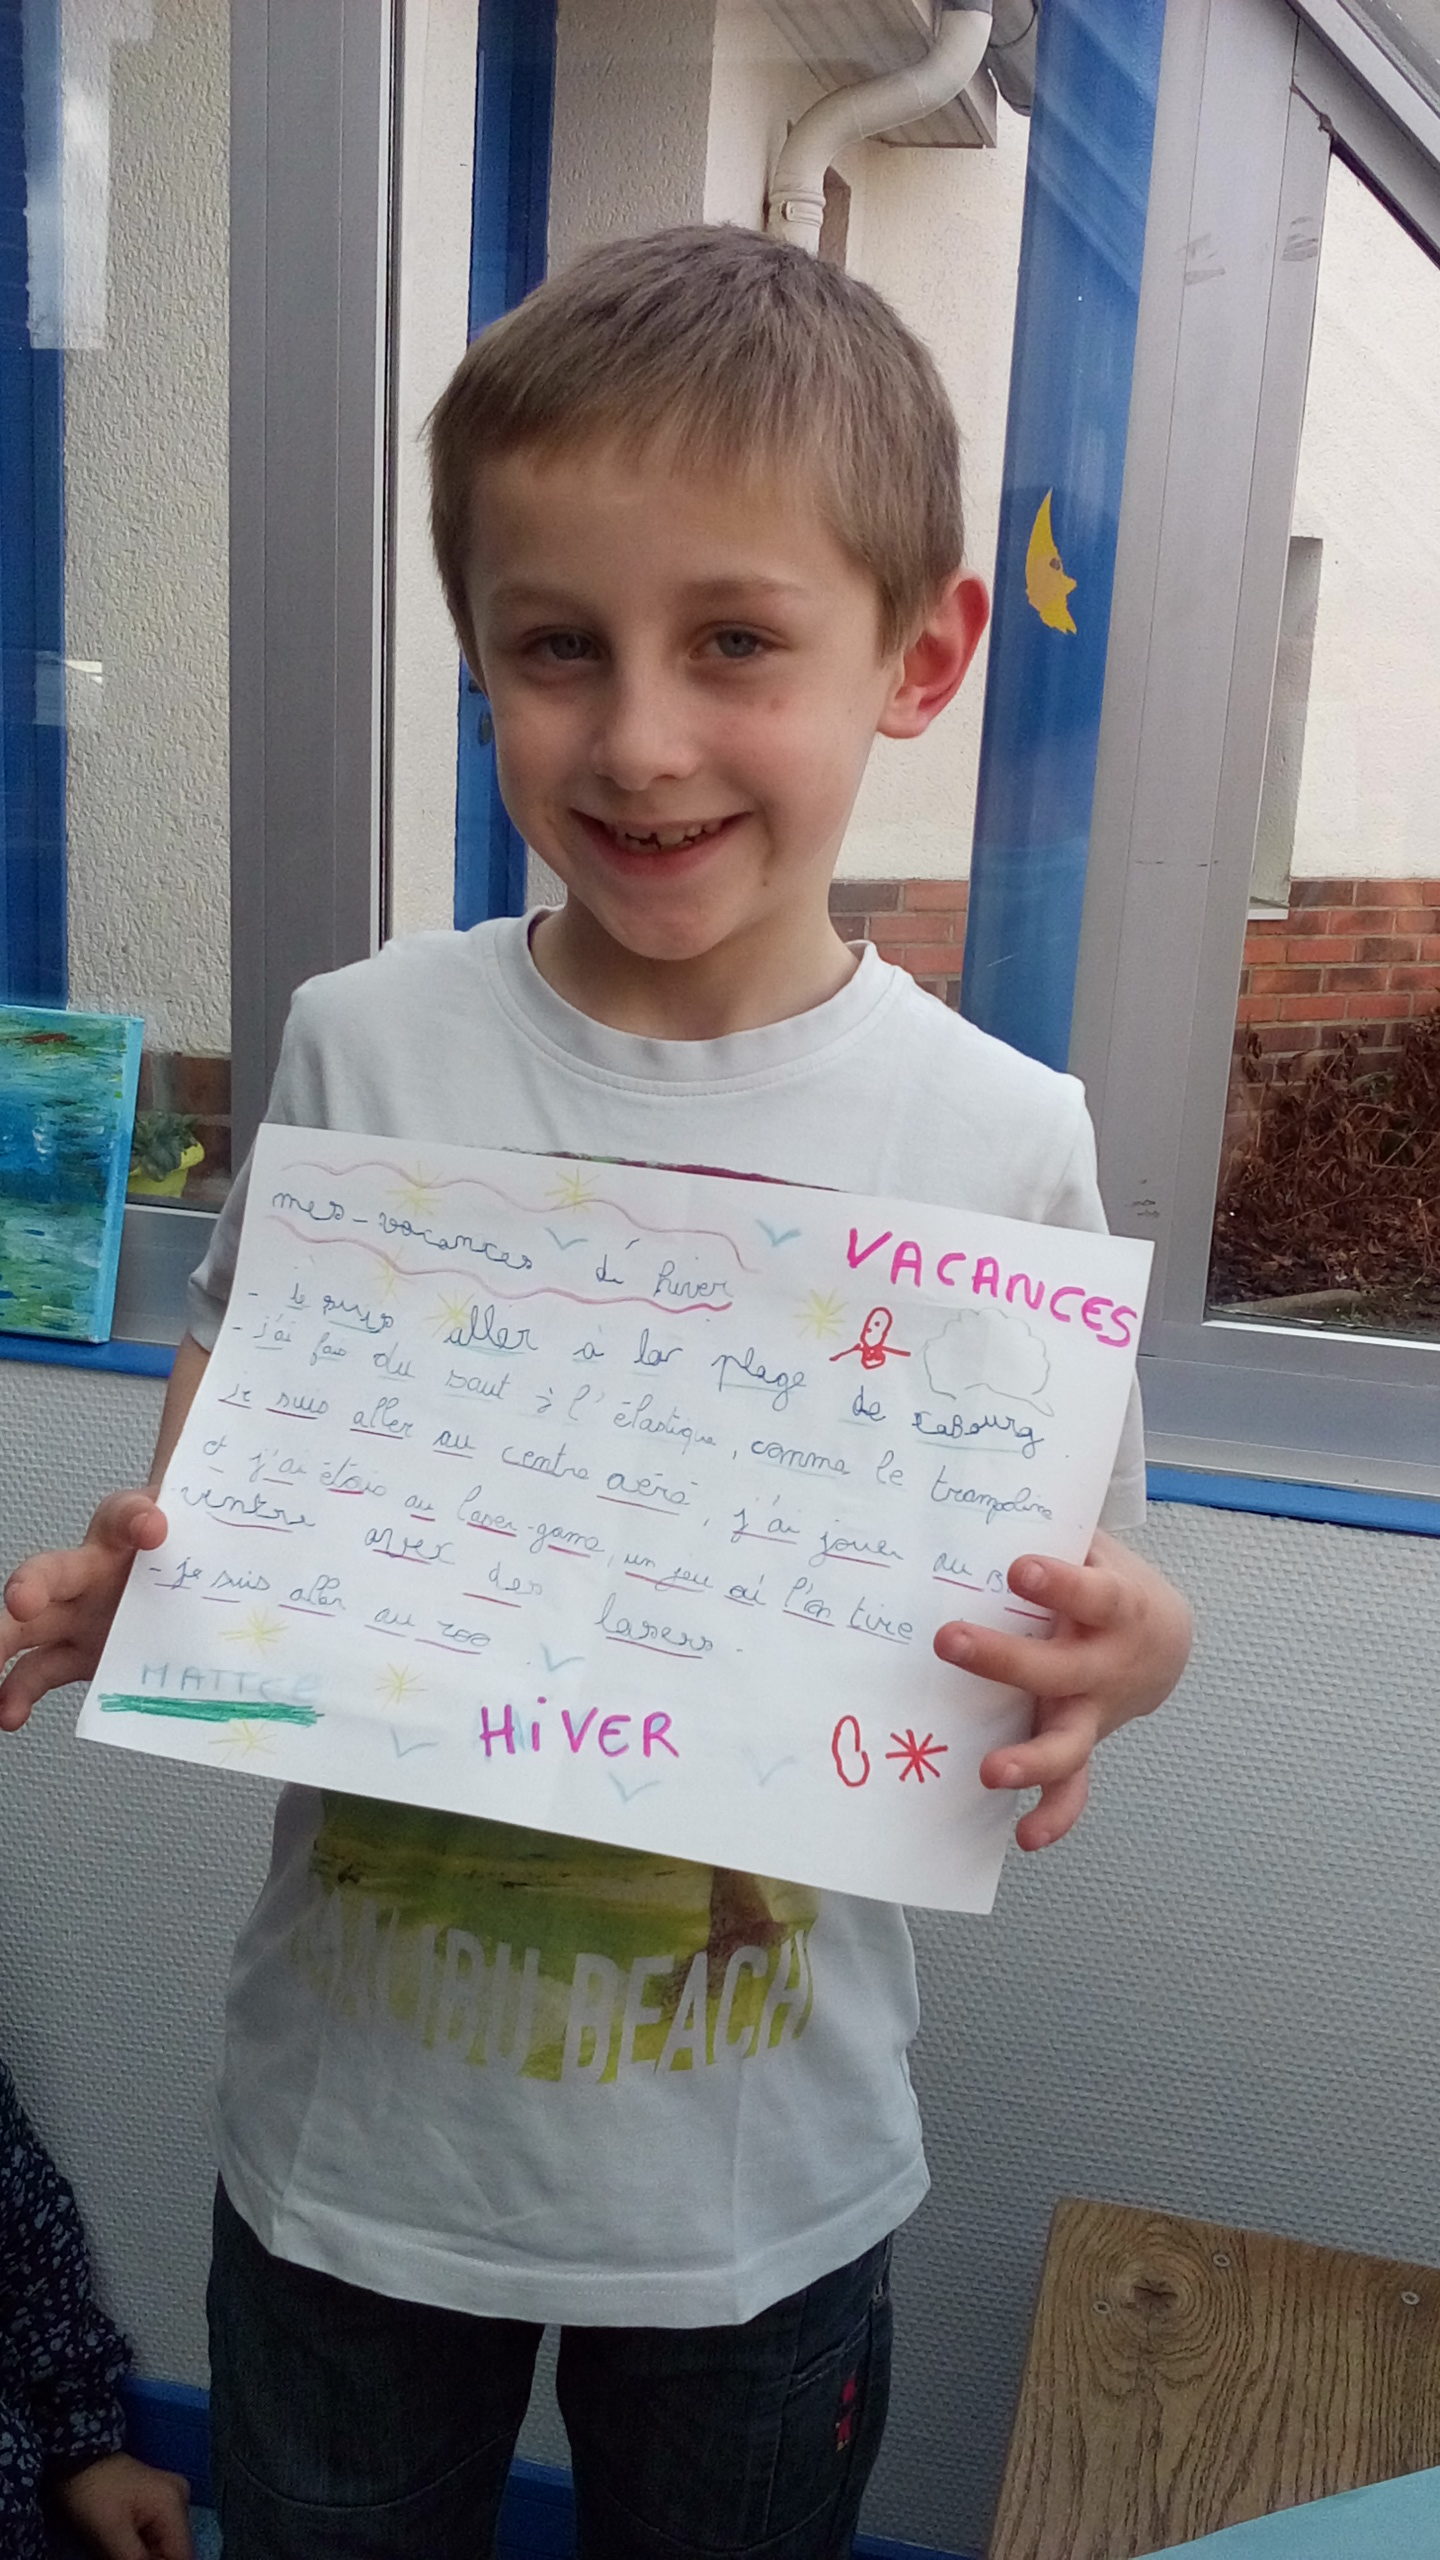 mes-vacances d'hiver
VACANCES
- je suis aller à la plage de CaBourg.
- j'ai fais du saut à l'élastique, comme le trampoline.
je suis aller au centre aéré, j'ai jouer au
et j'ai étais au laser-game, un jeu où l'on tire
ventre avec des lasers.
- je suis aller au zoo.
HiVER
MALIBU BEACH